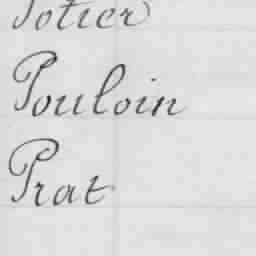 Potier
Pouloin
Prat